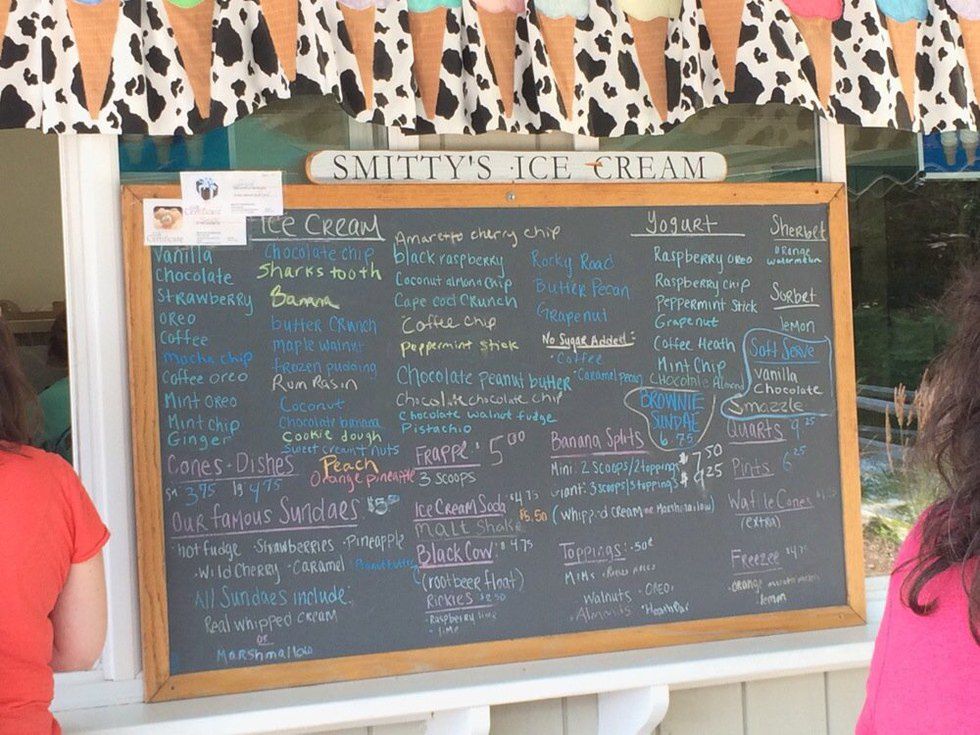 SMITTY'S ICE CREAM
Certificate
Certificate
ICE CREAM
Vanilla
Chocolate
Strawberry
OREO
Coffee
Mocha chip
Coffee OREO
Mint OREO
Mint chip
Ginger
Chocolate chip
Sharks tooth
Banana
butter CRUNCH
maple walnut
frozen pudding
Rum Rasin
Coconut
Chocolate banana
Cookie dough
Sweet cream + nuts
Peach
Orange pineapple
Amaretto cherry chip
black raspberry
Coconut almond chip
Cape cod CRUNCH
Coffee chip
peppermint stick
Chocolate peanut butter
Chocolate chocolate chip
Chocolate walnut fudge
Pistachio
Rocky Road
Butter Pecan
Grapenut
No Sugar Added:
Coffee
Caramel pecan
Yogurt
Raspberry OREO
Raspberry chip
Peppermint Stick
Grapenut
Coffee Heath
Mint Chip
Chocolate Almond
BROWNIE
SUNDAE
6.75
Sherbet
orange
watermelon
Sorbet
lemon
Soft Serve
Vanilla
Chocolate
Smazzle
Cones · Dishes
sm 3.75 lg 4.75
Our famous Sundaes $5.50
hot fudge · Strawberries · Pineapple
· Wild Cherry · Caramel · Peanut butter
· All Sundaes include:
Real whipped cream
or
Marshmallow
FRAPPE $5.00
3 scoops
ICE CREAM Soda $4.75
Malt Shake $5.50
BLACK COW: $4.75
(root beer float)
RICKIES $2.50
· Raspberry lime
· lime
Banana Splits
Mini: 2 scoops/2 toppings $7.50
Giant: 3 scoops/3 toppings $9.25
(whipped cream or Marshmallow)
Toppings: .50¢
M&Ms · Reese's Pieces
Walnuts · OREO
Almonds · Heath Bar
Quarts 9.25
Pints 6.25
Waffle Cones
(extra)
Freezee $4.75
· orange
· lemon